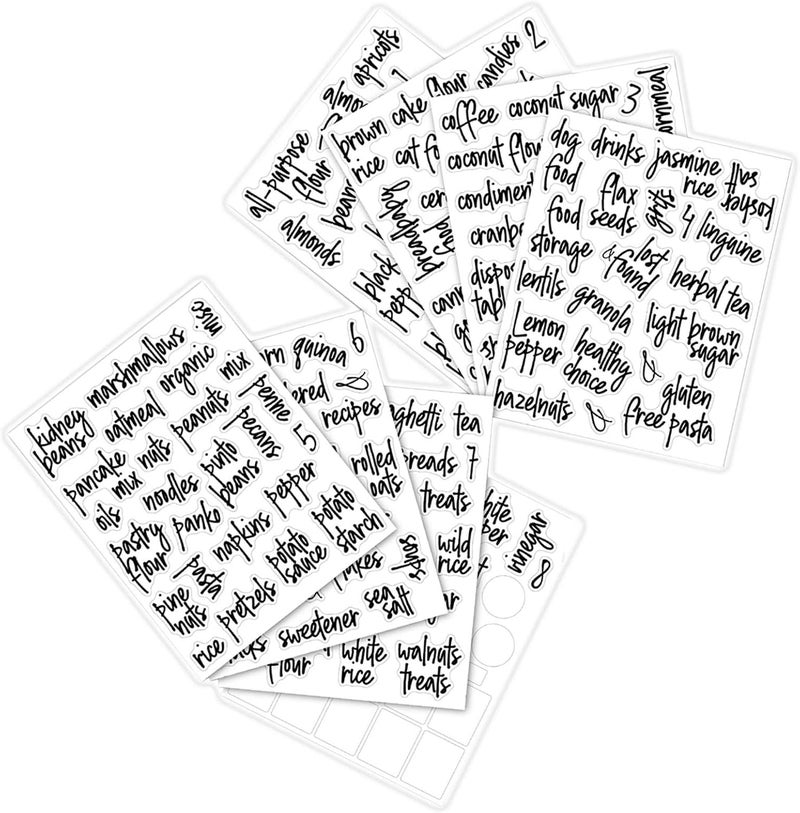 apricots
1
all-purpose
flour
almonds
candies 2
brown cake flour
rice
black
pepper
coffee coconut sugar 3
coconut
dog drinks jasmine
food rice
kosher
salt
flax
seeds
grits
4 linguine
food
storage
& lost
found
herbal tea
lentils granola
light brown
sugar
Lemon
pepper
healthy
choice
&
gluten
free pasta
hazelnuts &
kidney marshmallows misc.
beans
oatmeal organic
pancake
mix
nuts peanuts mix
penne
oils noodles pinto
beans
pecans 5
pastry
flour
panko napkins pepper
pasta potato
sauce
potato
starch
pine
nuts
rice pretzels
quinoa 6
&
recipes
rolled
sweetener
tea
7
treats
wild
rice
sea
salt
flour white
rice
walnuts
treats
vinegar
8